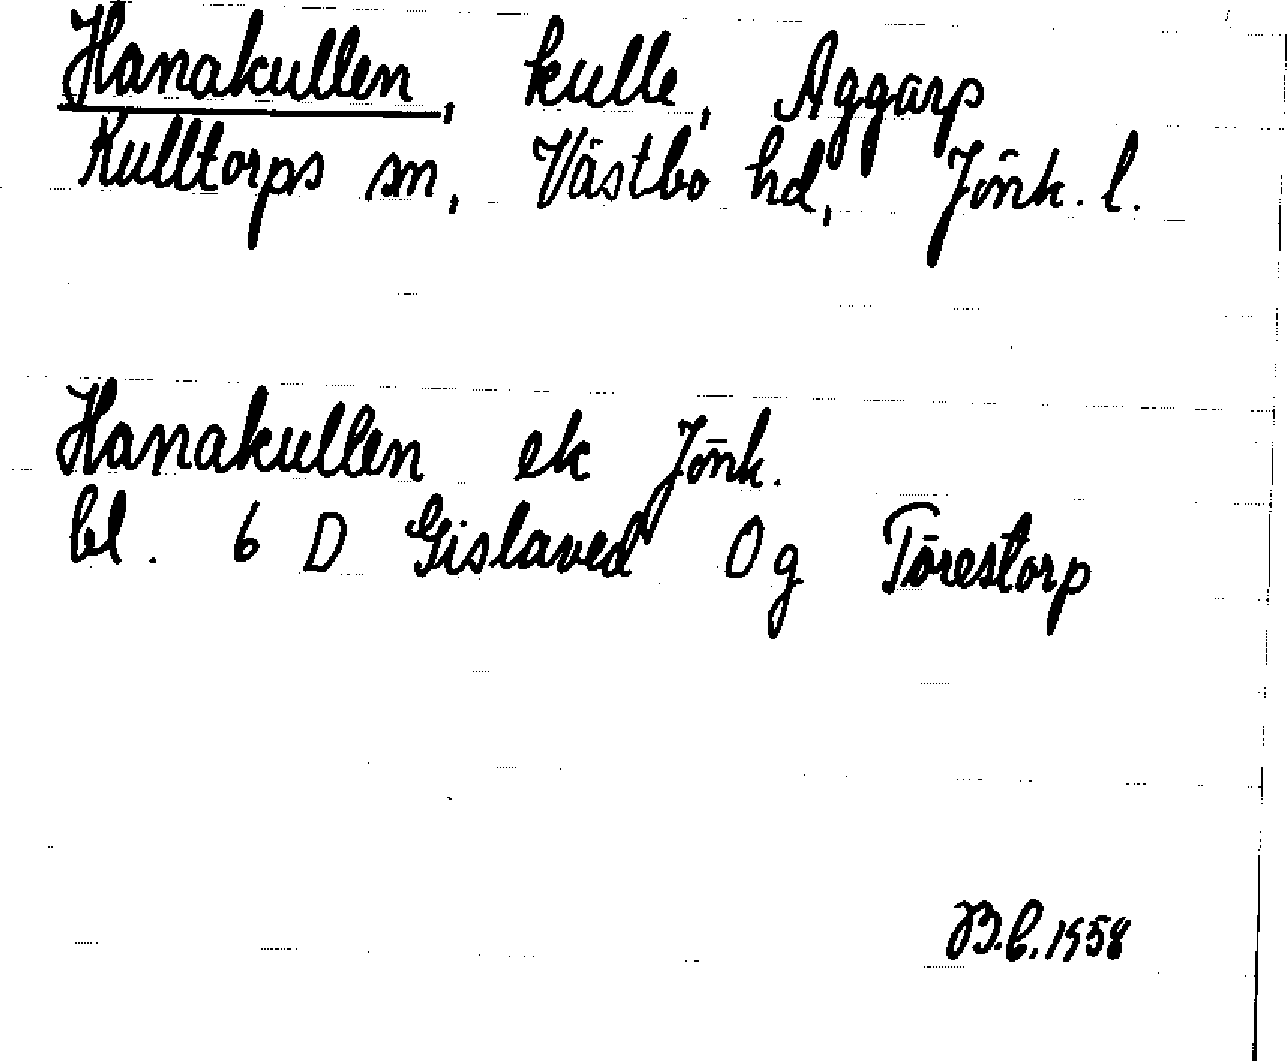 Hanakullen, kulle, Aggarp
Kulltorps sn, Västbo hd, Jönk. l.
Hanakullen ek Jönk.
bl. 6 D Gislaved 0 g Törestorp
B.C. 1958